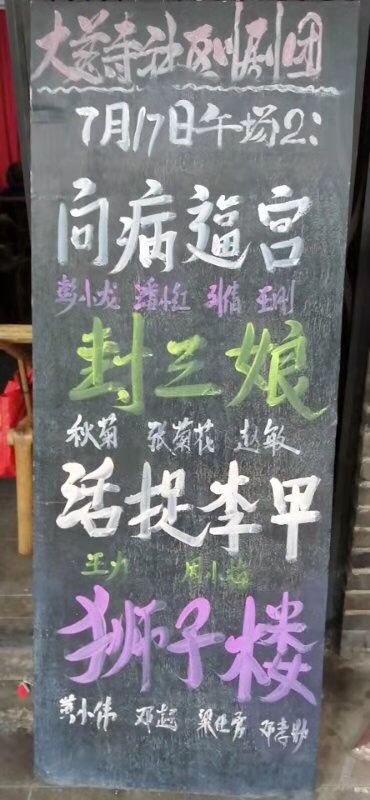 大慈寺社区川剧团
7月17日午场2:
问病逼宫
彭小龙 潘小红 刘倩 王刚
封三娘
秋菊 张菊花 赵敏
活捉李甲
王力 周小梅
狮子楼
黄小伟 邓超